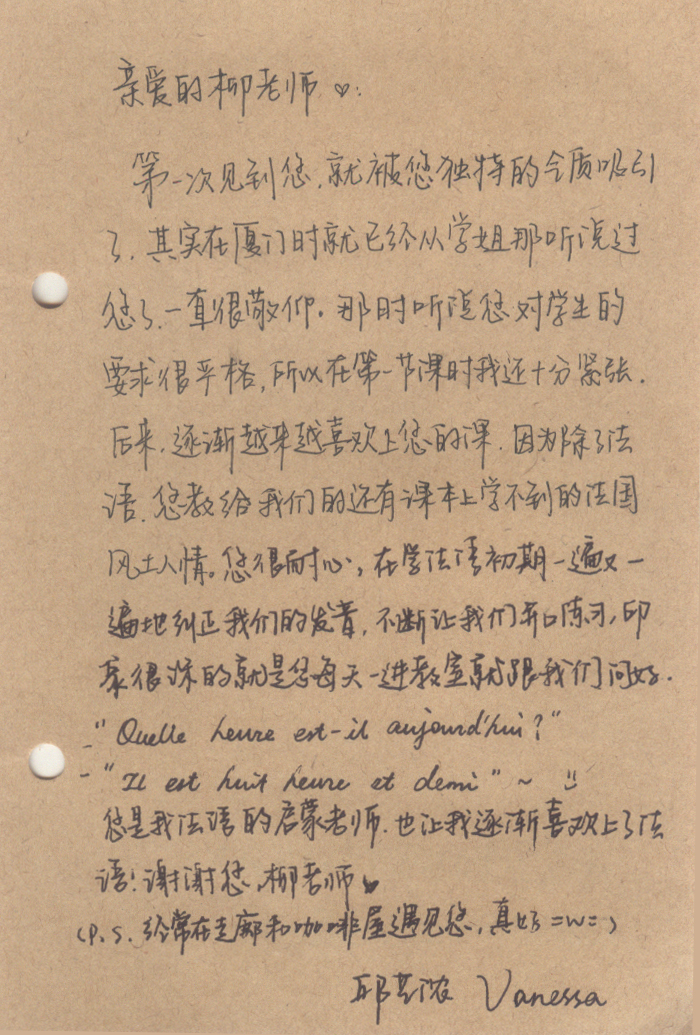 亲爱的柳老师♡:
第一次见到您,就被您独特的气质吸引
了.其实在厦门时就已经从学姐那听说过
您了,一直很敬仰。那时听说您对学生的
要求很严格,所以在第一节课时我还十分紧张.
后来,逐渐越来越喜欢上您的课.因为除了法
语,您教给我们的还有课本上学不到的法国
风土人情。您很耐心,在学法语初期一遍又一
遍地纠正我们的发音,不断让我们开口练习,印
象很深的就是您每天一进教室就跟我们问好.
- "Quelle heure est-il aujourd'hui?"
- "Il est huit heure et demi" ~
您是我法语的启蒙老师.也让我逐渐喜欢上了法
语!谢谢您,柳老师♥
(P.S. 经常在走廊和咖啡屋遇见您,真好=w=)
邱 Vanessa